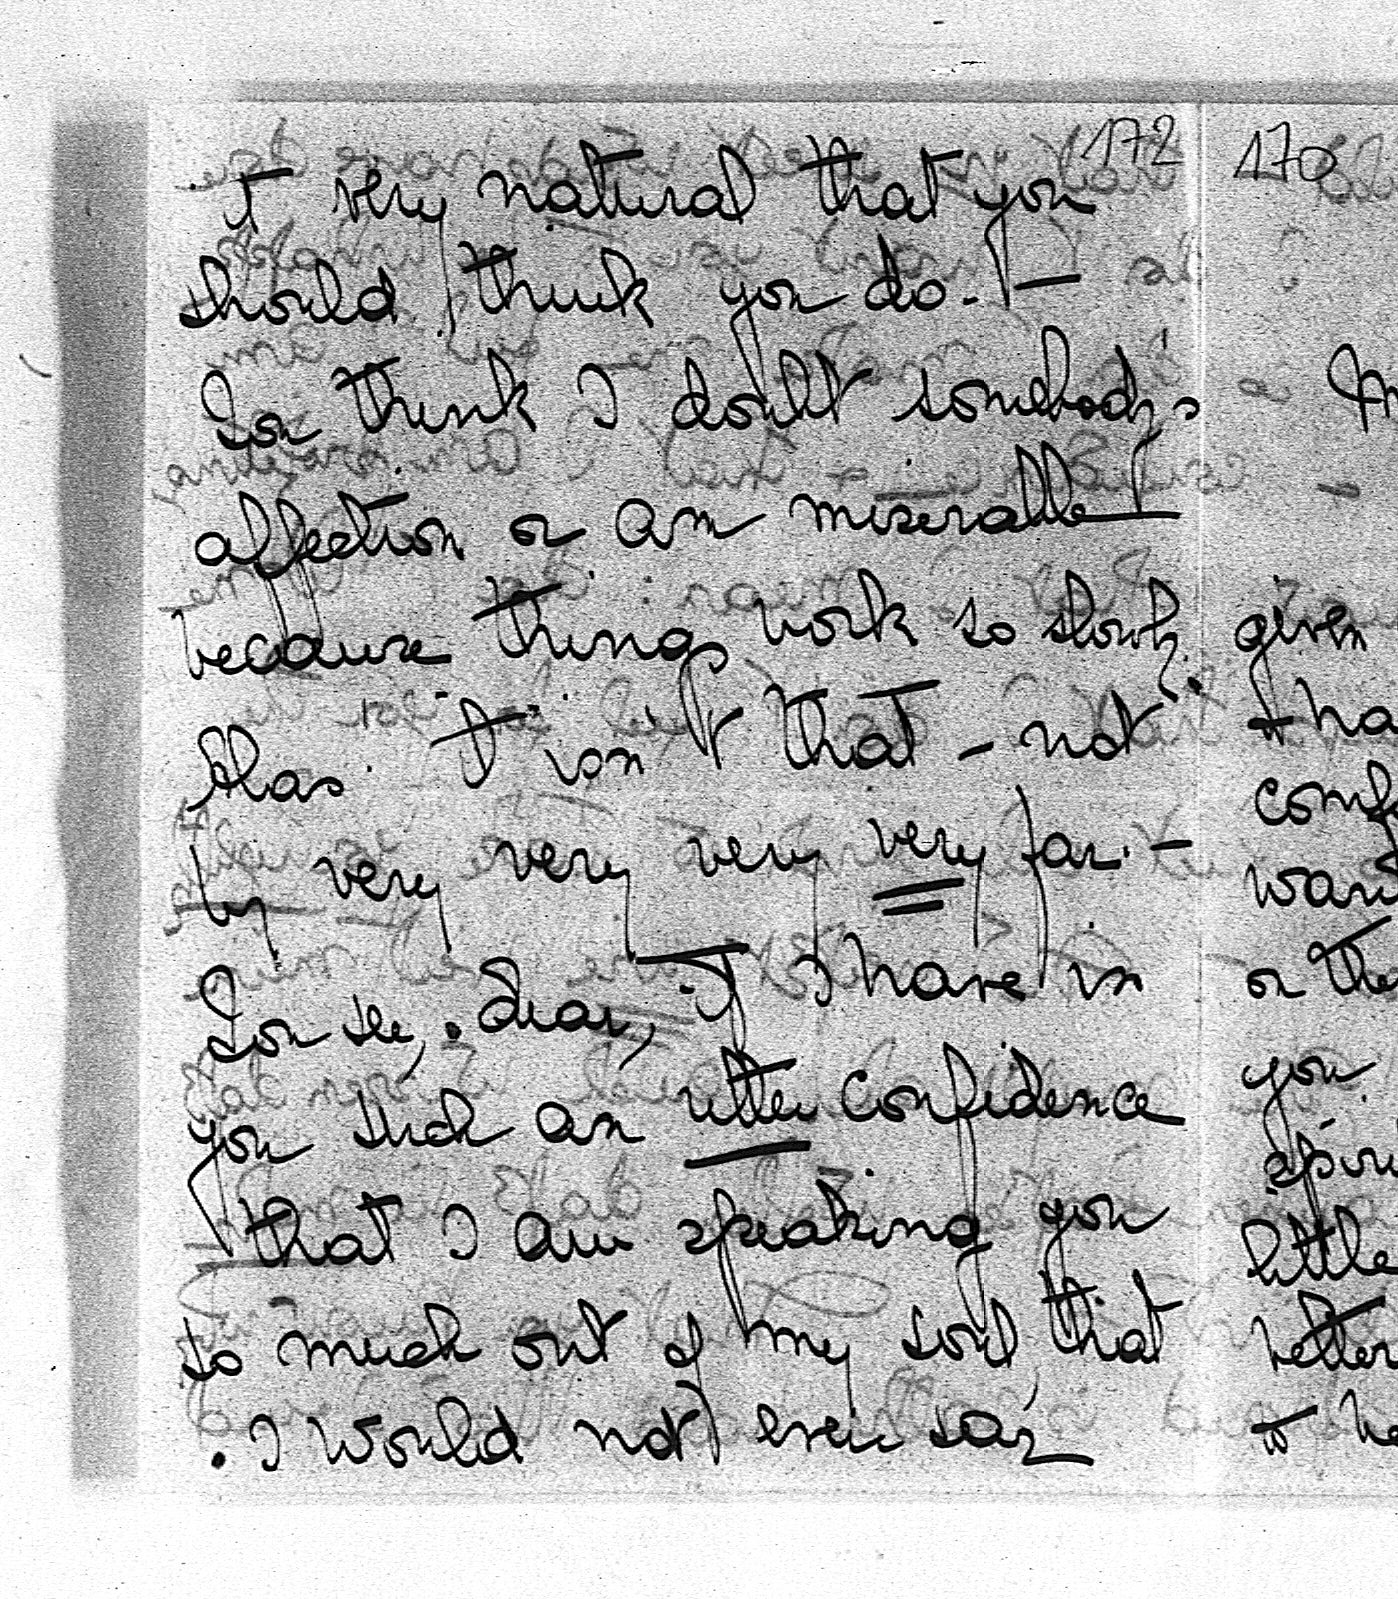 172
It very natural that you
should think you do. —
You think I doubt somebody's
affection or am miserable
because things work so slowly.
Alas. It isn't that – not
by very very very very far. –
You see, Dear, if I have in
you such an utter confidence
that I am speaking you
so much out of my soul that
I would not even say
170
given
to ha
comf
want
or the
you
spiri
little
better
to he